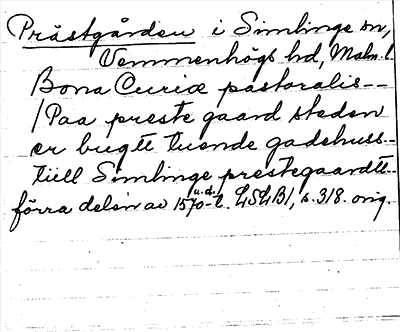 Prästgården i Simlinge sn,
Vemmenhögs hd, Malm. l.
Bona Curiæ pastoralis--
/Paa preste gaard steden
er bugtt tuende gadehuss--
tiell Simlinge prestegaardtt--
förra delen av 1570-t. u.d. LSLB1, s. 318. orig.